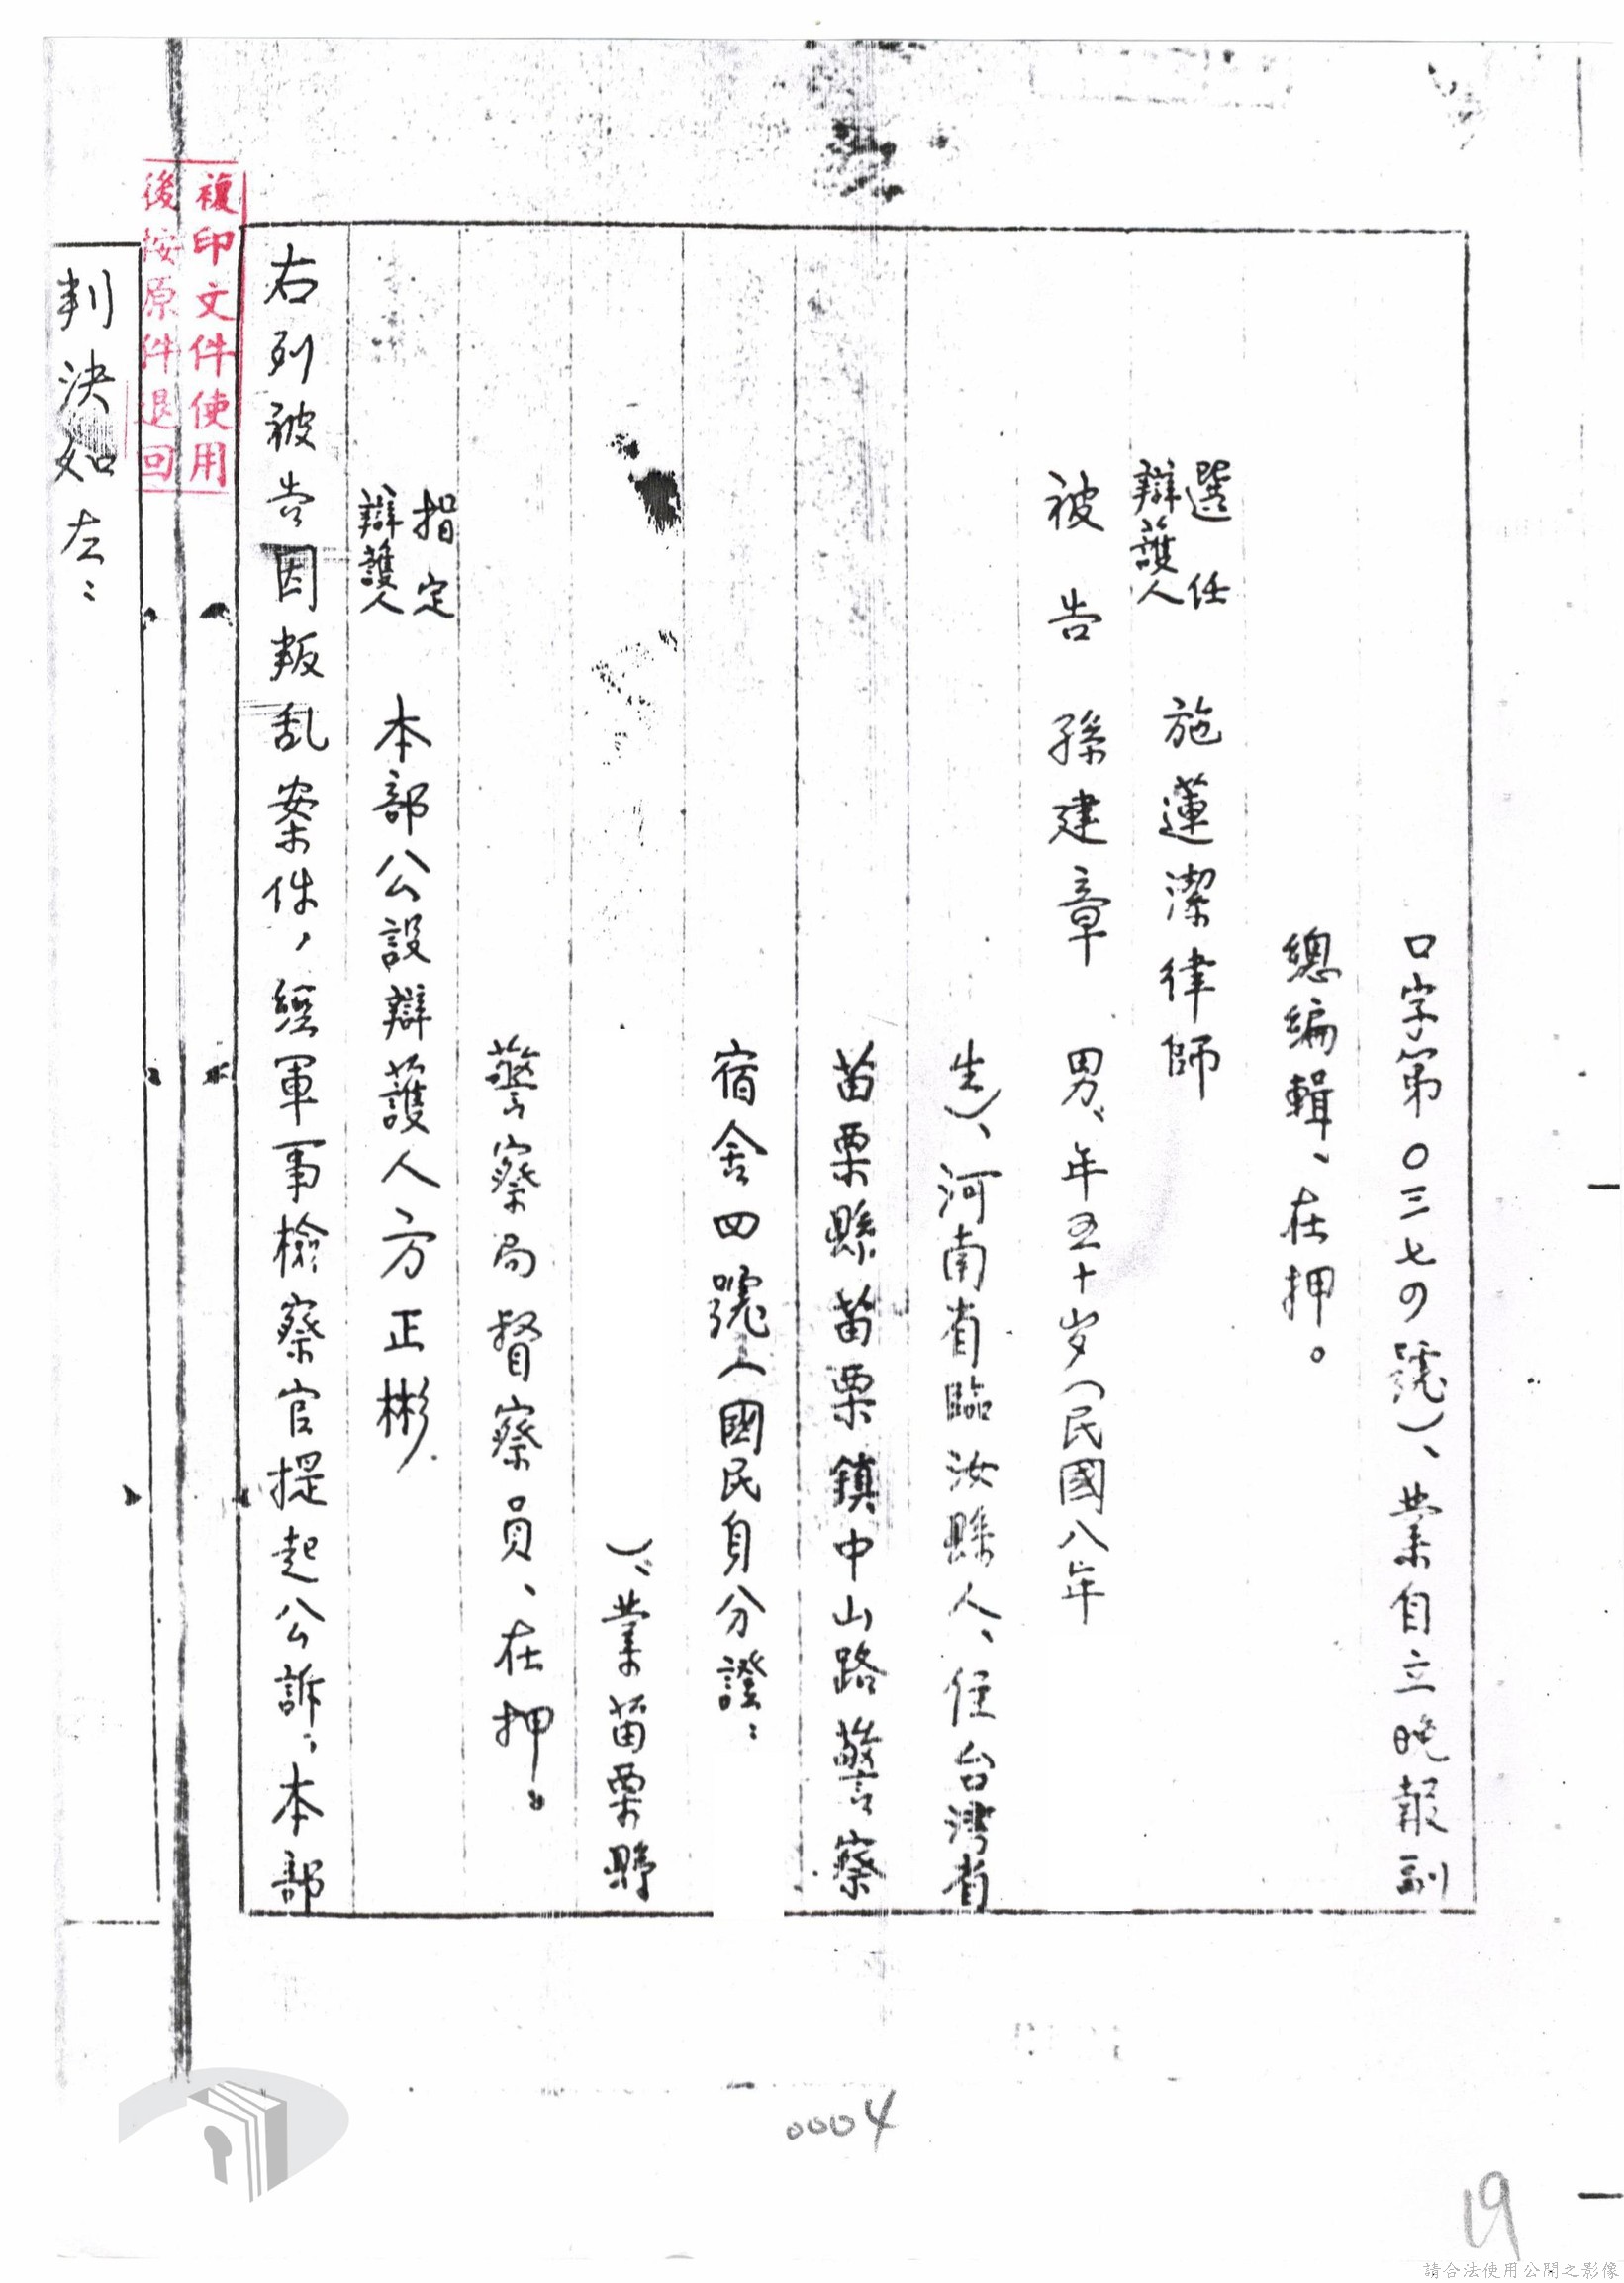 口字第〇三七四號）、業自立晚報副
總編輯、在押。
選任
辯護人 施蓮潔律師
被告 孫建章 男、年五十岁（民國八年
生）、河南省臨汝縣人、住台灣省
苗栗縣苗栗鎮中山路警察
宿舍四號（國民身分證：
）、業苗栗縣
警察局督察員、在押。
指定
辯護人 本部公設辯護人方正彬
右列被告因叛乱案件，經軍事檢察官提起公訴，本部
判決如左：
複印文件使用
後按原件退回
0004
19
請合法使用公開之影像